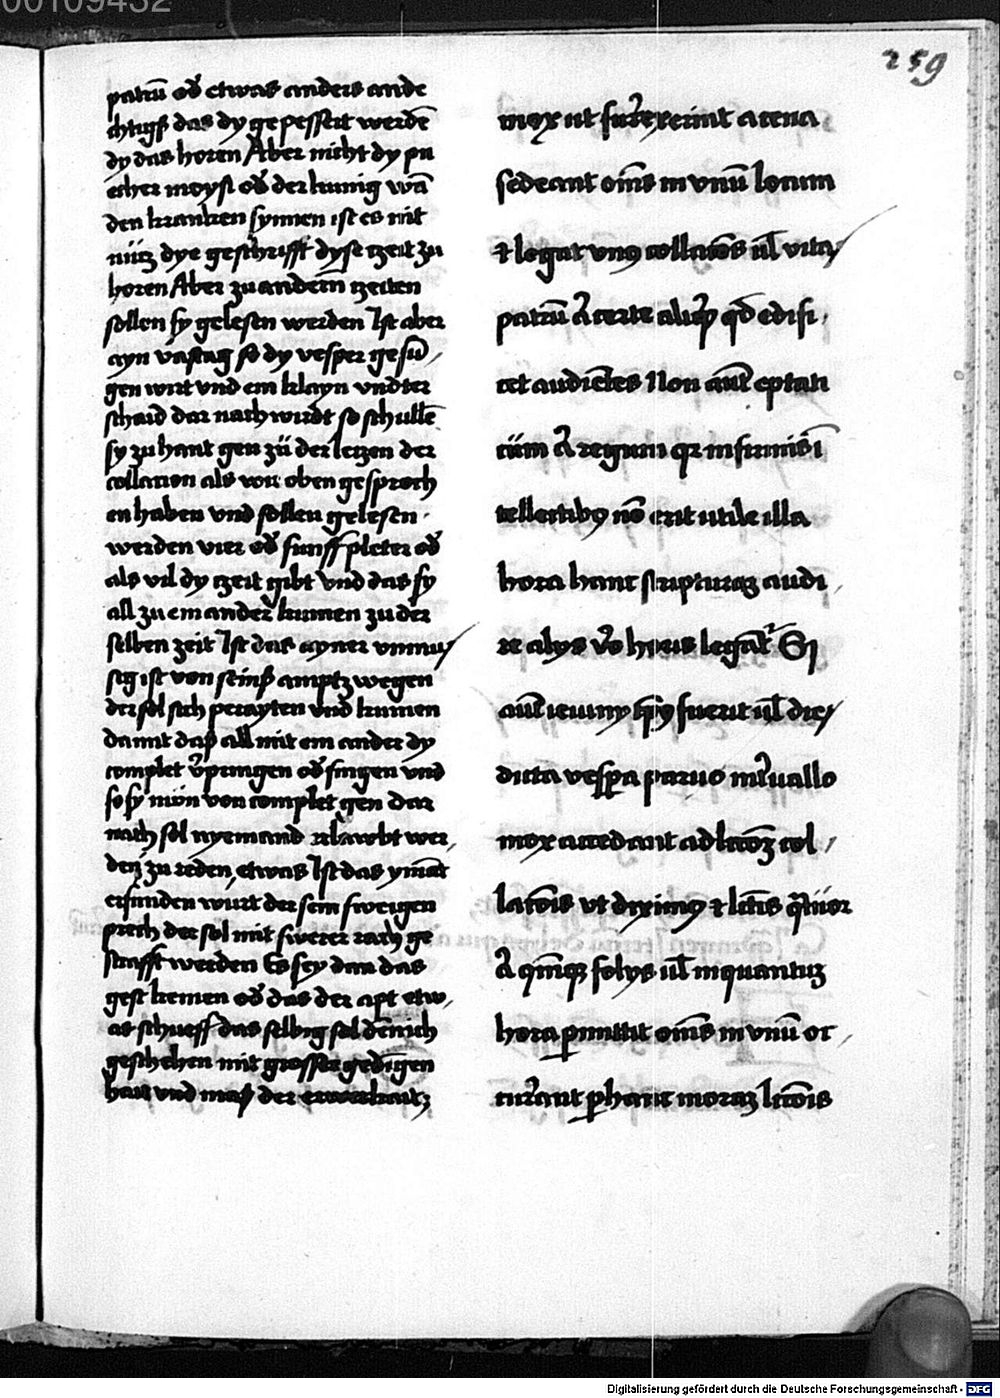 00109432
259
patrū od̄ etwas anders ande
chtigs das dy gepessert werdē
dy das horen Aber nicht dy pu
echer moysi od̄ der kunig wā
den kranken synnen ist es nit
nücz dye geschrifft dyse tzeit zu
horen Aber zu andern tzeiten
sollen sy gelesen werden Ist aber
ayn vastag so dy vesper gesū
gen wirt vnd ein klayn vndter
schaid dar nach wirdt so schullē
sy zu hant gen zü der letzen der
collation als wir oben gesproch
en haben vnd sollen gelesen
werden vier od̄ funff pleter od̄
als vil dy tzeit gibt vnd das sy
all zu einander kumen zu der
selben zeit Ist das ayner vnmus
sig ist von seins amptz wegen
der sol sich perayten vnd kumen
damit das all mit einander dy
complet v̄pringen od̄ singen vnd
so sy nün von complet gen dar
nach sol nyemand erlawbt wer
den zu reden etwas Ist das ymāt
erfunden wurt der sein sweigen
prech der sol mit swerer rach ge
strafft werden Es sey dan das
gest kemen od̄ das der apt etw
as schueff das selbig sol dennoch
geschehen mit grosser gedigen
hait vnd mas der erwerkait
mox ut surrexerint a cena
sedeant om̄s in vnū locum
⁊ legat vnꝰ collacōes ul̄ vitas
patrū a᷑ certe aliqd̄ qd̄ edifi
cet audientes Non aut̄ eptati
cum a᷑ regum qr infirmis ī
tellectibꝰ nō erit utile illa
hora hanc scripturaꝫ audi
re alys v̄o horis legāt᷑ Si
aut̄ ieiuny dies fuerit ul̄ dies
dicta vesꝑa paruo int̄uallo
mox accedant ad lccōꝫ col
lacōis vt diximꝰ ⁊ lc̄tis q̄tuor
a᷑ qͥnqꝫ folys ul̄ inquantuꝫ
hora ꝑmittit om̄s in vnū oc
cur̄ant ꝑ hanc moraꝫ lccōis
Digitalisierung gefördert durch die Deutsche Forschungsgemeinschaft - DFG